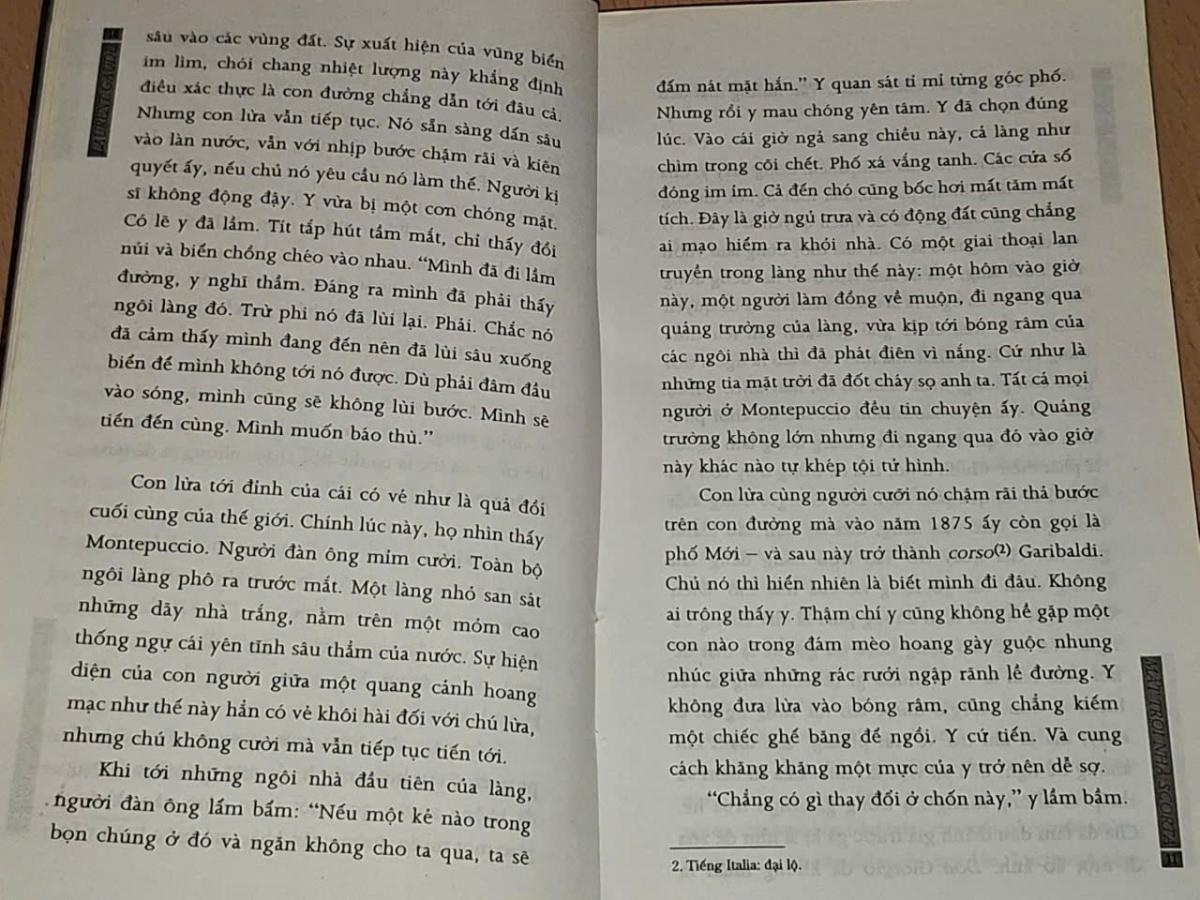 LAURENT GAUDÉ
sâu vào các vùng đất. Sự xuất hiện của vũng biển
im lìm, chói chang nhiệt lượng này khẳng định
điều xác thực là con đường chẳng dẫn tới đâu cả.
Nhưng con lừa vẫn tiếp tục. Nó sẵn sàng dấn sâu
vào làn nước, vẫn với nhịp bước chậm rãi và kiên
quyết ấy, nếu chủ nó yêu cầu nó làm thế. Người kị
sĩ không động đậy. Y vừa bị một cơn chóng mặt.
Có lẽ y đã lầm. Tít tắp hút tầm mắt, chỉ thấy đồi
núi và biển chồng chéo vào nhau. “Mình đã đi lầm
đường, y nghĩ thầm. Đáng ra mình đã phải thấy
ngôi làng đó. Trừ phi nó đã lùi lại. Phải. Chắc nó
đã cảm thấy mình đang đến nên đã lùi sâu xuống
biển để mình không tới nó được. Dù phải đâm đầu
vào sóng, mình cũng sẽ không lùi bước. Mình sẽ
tiến đến cùng. Mình muốn báo thù.”
Con lừa tới đỉnh của cái có vẻ như là quả đồi
cuối cùng của thế giới. Chính lúc này, họ nhìn thấy
Montepuccio. Người đàn ông mỉm cười. Toàn bộ
ngôi làng phô ra trước mắt. Một làng nhỏ san sát
những dãy nhà trắng, nằm trên một mỏm cao
thống ngự cái yên tĩnh sâu thẳm của nước. Sự hiện
diện của con người giữa một quang cảnh hoang
mạc như thế này hẳn có vẻ khôi hài đối với chú lừa,
nhưng chú không cười mà vẫn tiếp tục tiến tới.
Khi tới những ngôi nhà đầu tiên của làng,
người đàn ông lẩm bẩm: “Nếu một kẻ nào trong
bọn chúng ở đó và ngăn không cho ta qua, ta sẽ
đấm nát mặt hắn.” Y quan sát tỉ mỉ từng góc phố.
Nhưng rồi y mau chóng yên tâm. Y đã chọn đúng
lúc. Vào cái giờ ngả sang chiều này, cả làng như
chìm trong cõi chết. Phố xá vắng tanh. Các cửa sổ
đóng im ỉm. Cả đến chó cũng bốc hơi mất tăm mất
tích. Đây là giờ ngủ trưa và có động đất cũng chẳng
ai mạo hiểm ra khỏi nhà. Có một giai thoại lan
truyền trong làng như thế này: một hôm vào giờ
này, một người làm đồng về muộn, đi ngang qua
quảng trường của làng, vừa kịp tới bóng râm của
các ngôi nhà thì đã phát điên vì nắng. Cứ như là
những tia mặt trời đã đốt cháy sọ anh ta. Tất cả mọi
người ở Montepuccio đều tin chuyện ấy. Quảng
trường không lớn nhưng đi ngang qua đó vào giờ
này khác nào tự khép tội tử hình.
Con lừa cùng người cưỡi nó chậm rãi thả bước
trên con đường mà vào năm 1875 ấy còn gọi là
phố Mới – và sau này trở thành corso(2) Garibaldi.
Chủ nó thì hiển nhiên là biết mình đi đâu. Không
ai trông thấy y. Thậm chí y cũng không hề gặp một
con nào trong đám mèo hoang gầy guộc nhung
nhúc giữa những rác rưởi ngập rãnh lề đường. Y
không đưa lừa vào bóng râm, cũng chẳng kiếm
một chiếc ghế băng để ngồi. Y cứ tiến. Và cung
cách khăng khăng một mực của y trở nên dễ sợ.
“Chẳng có gì thay đổi ở chốn này,” y lầm bầm.
2. Tiếng Italia: đại lộ.
MẶT TRỜI NHÀ SCORTA
11